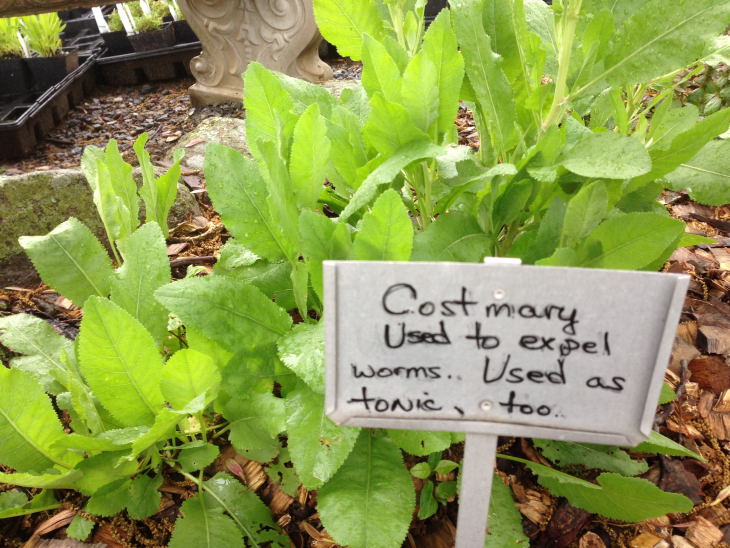 Costmary
Used to expel
worms.. Used as
tonic, too..